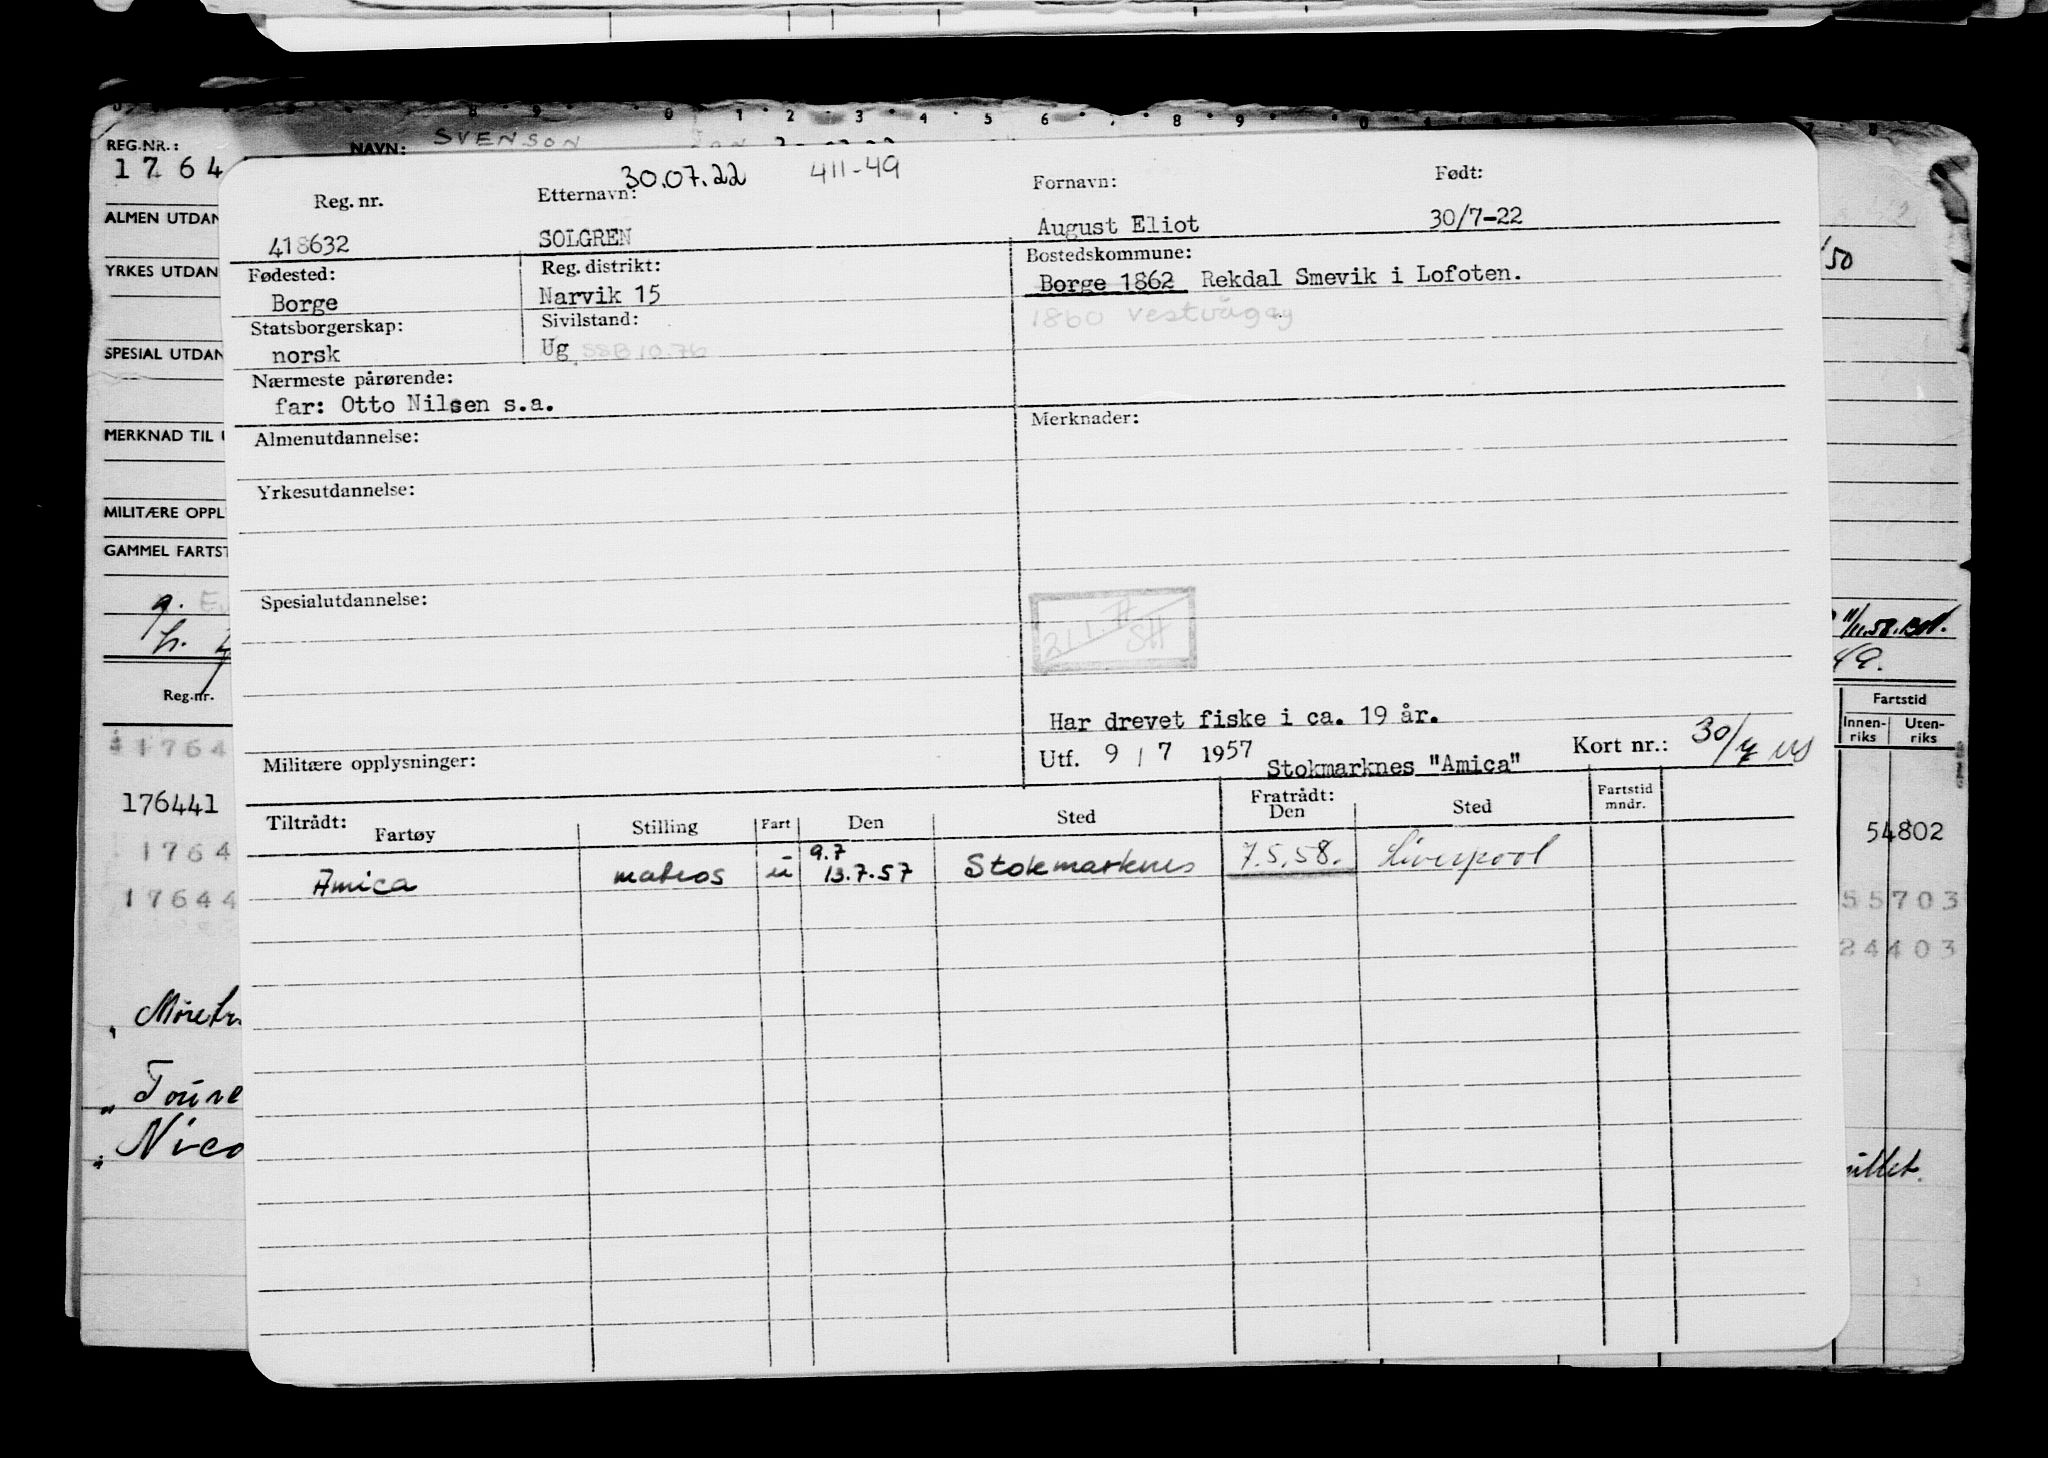 REG.NR.:
1 7 6 4
NAVN: SVENSON
ALMEN UTDAN
YRKES UTDAN
SPESIAL UTDAN
MERKNAD TIL U
MILITÆRE OPPL
GAMMEL FARTST
Reg.nr.
1 7 6 4
176441
1 7 6 4
1 7 6 4 4
Toure
Nico
30.07.22 411-49
Reg. nr. Etternavn: Fornavn: Født:
418632 SOLGREN August Eliot 30/7-22
Fødested: Reg. distrikt: Bostedskommune:
Borge Narvik 15 Borge 1862 Rekdal Smevik i Lofoten.
Statsborgerskap: Sivilstand: 1860 Vestvågøy
norsk Ug SSB 10.76
Nærmeste pårørende:
far: Otto Nilsen s.a.
Almenutdannelse: Merknader:
Yrkesutdannelse:
Spesialutdannelse:
SH
Har drevet fiske i ca. 19 år.
Militære opplysninger: Utf. 9 / 7 1957 Stokmarknes "Amica" Kort nr.: 30/7
Tiltrådt: Fratrådt:
Fartøy Stilling Fart Den Sted Den Sted Fartstid mndr.
9.7
Amica matros u 13.7.57 Stokmarknes 7.5.58. Liverpool
/50
11/11.58.
49.
Fartstid
Innen-
riks Uten-
riks
54802
55703
24403